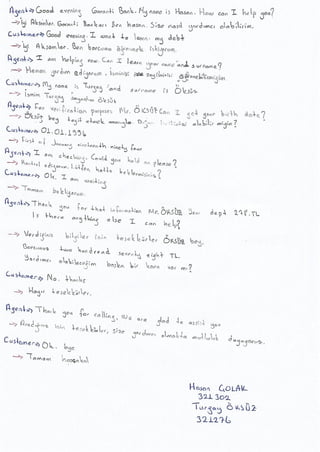 Agent→ Good evening Garanti Bank. My name is Hasan. How can I help you?
→ İyi Akşamlar Garanti Bankası Ben hasan. Size nasıl yardımcı olabilirim.
Customer→ Good evening. I want to learn my debt
→ İyi Akşamlar. Ben borcumu öğrenmek istiyorum.
Agent→ I am helping now. Can I learn your name and surname?
→ Hemen yardım ediyorum. isminizi soyisminizi öğrenebilirmiyim
Customer→ My name is Turgay and surname is Öksüz.
→ İsmim Turgay soyadım öksüz
Agent→ For verification purposes Mr. ÖKSÜZ Can I get your birth date?
→ Öksüz bey teyit etmek amacıyla Doğum
Customer→ 01.01.1994
→ First of January nineteenth ninety four.
Agent→ I am checking. Could you hold on please?
→ Kontrol ediyorum. Lütfen hatta beklermisiniz?
Customer→ Ok. I am waiting
→ Tamam bekliyorum.
Agent→ Thank you for that information Mr. ÖKSÜZ Your dept 278 TL
Is there anything else I can help?
→ Verdiğiniz bilgiler için teşekkürler ÖKSÜZ bey.
Borcunuz two hundread seventy eight TL.
Yardımcı olabileceğim başka bir konu var mı?
Customer→ No. thanks
→ Hayır teşekkürler.
Agent→ Thank you for calling, We are glad to assist you
→ Aradığınız için teşekkürler, size yardımcı olmakta mutluluk duyuyoruz.
Customer→ Ok. bye
→ Tamam hoşçakal
Hasan ÇOLAK
321302
Turgay ÖKSÜZ
321276